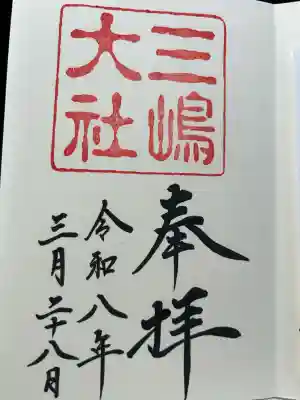 三嶋
大社
奉拝
令和八年
三月二十八日